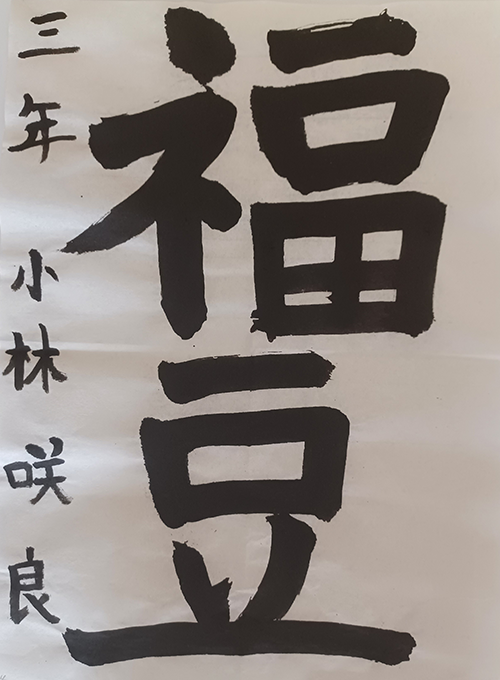 福豆
三年 小林 咲良